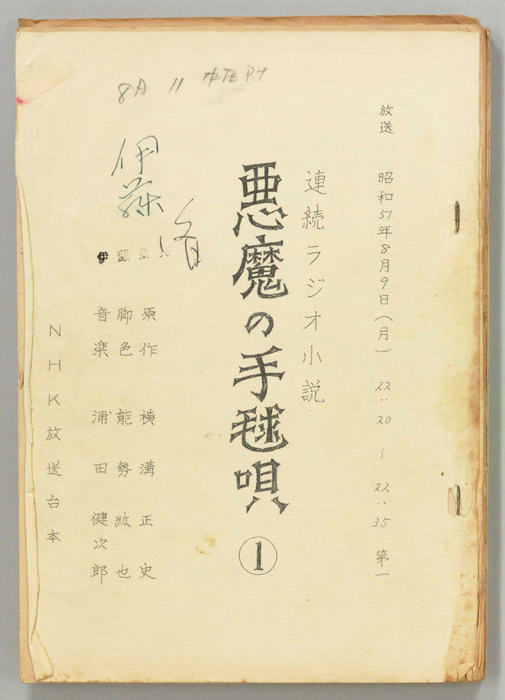 8月 11
放送 昭和51年8月9日(月) 22:20～22:35 第一
連続ラジオ小説
悪魔の手毬唄 ①
伊藤
原作 横溝正史
脚色 能勢紘也
音楽 浦田健次郎
NHK放送台本